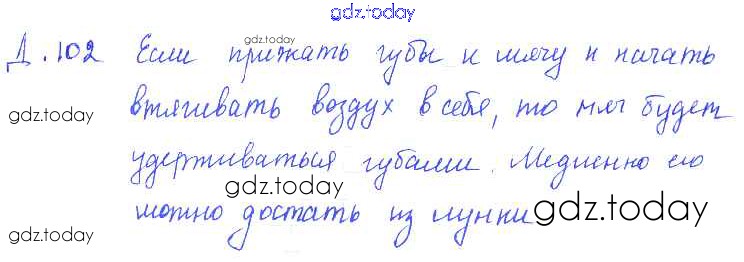 gdz.today
gdz.today
Д.102 Если прижать губы к мячу и начать
gdz.today
втягивать воздух в себя, то мяч будет
удерживаться губами. Медленно его
gdz.today
можно достать из лунки
gdz.today
gdz.today